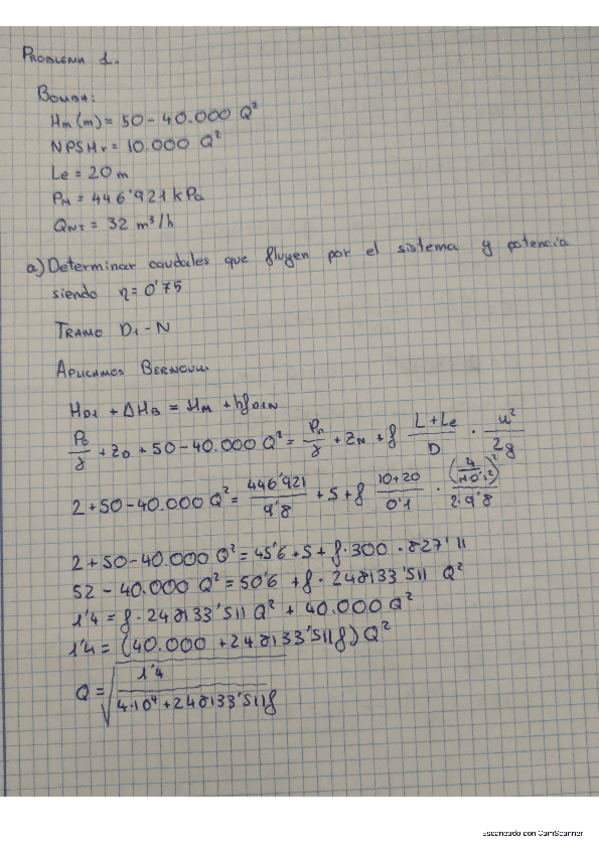 PROBLEMA 1.-
BOMBA:
Hm (m) = 50 - 40.000 Q²
NPSHr = 10.000 Q²
Le = 20 m
PN = 446'921 kPa
QNT = 32 m³/h
a) Determinar caudales que fluyen por el sistema y potencia
siendo η = 0'75
TRAMO D1 - N
APLICAMOS BERNOULLI
HD1 + ΔHB = HM + hfD1N
PD/γ + ZD + 50 - 40.000 Q² = Pn/γ + ZN + f (L + Le)/D · u²/2g
2 + 50 - 40.000 Q² = 446'921/9'8 + 5 + f (10+20)/0'1 · (4/(π·0'1²))²/(2·9'8)
2 + 50 - 40.000 Q² = 45'6 + 5 + f · 300 · 827'11
52 - 40.000 Q² = 50'6 + f · 248133'511 Q²
1'4 = f · 248133'511 Q² + 40.000 Q²
1'4 = (40.000 + 248133'511 f) Q²
Q = √(1'4/(4·10⁴ + 248133'511 f))
Escaneado con CamScanner